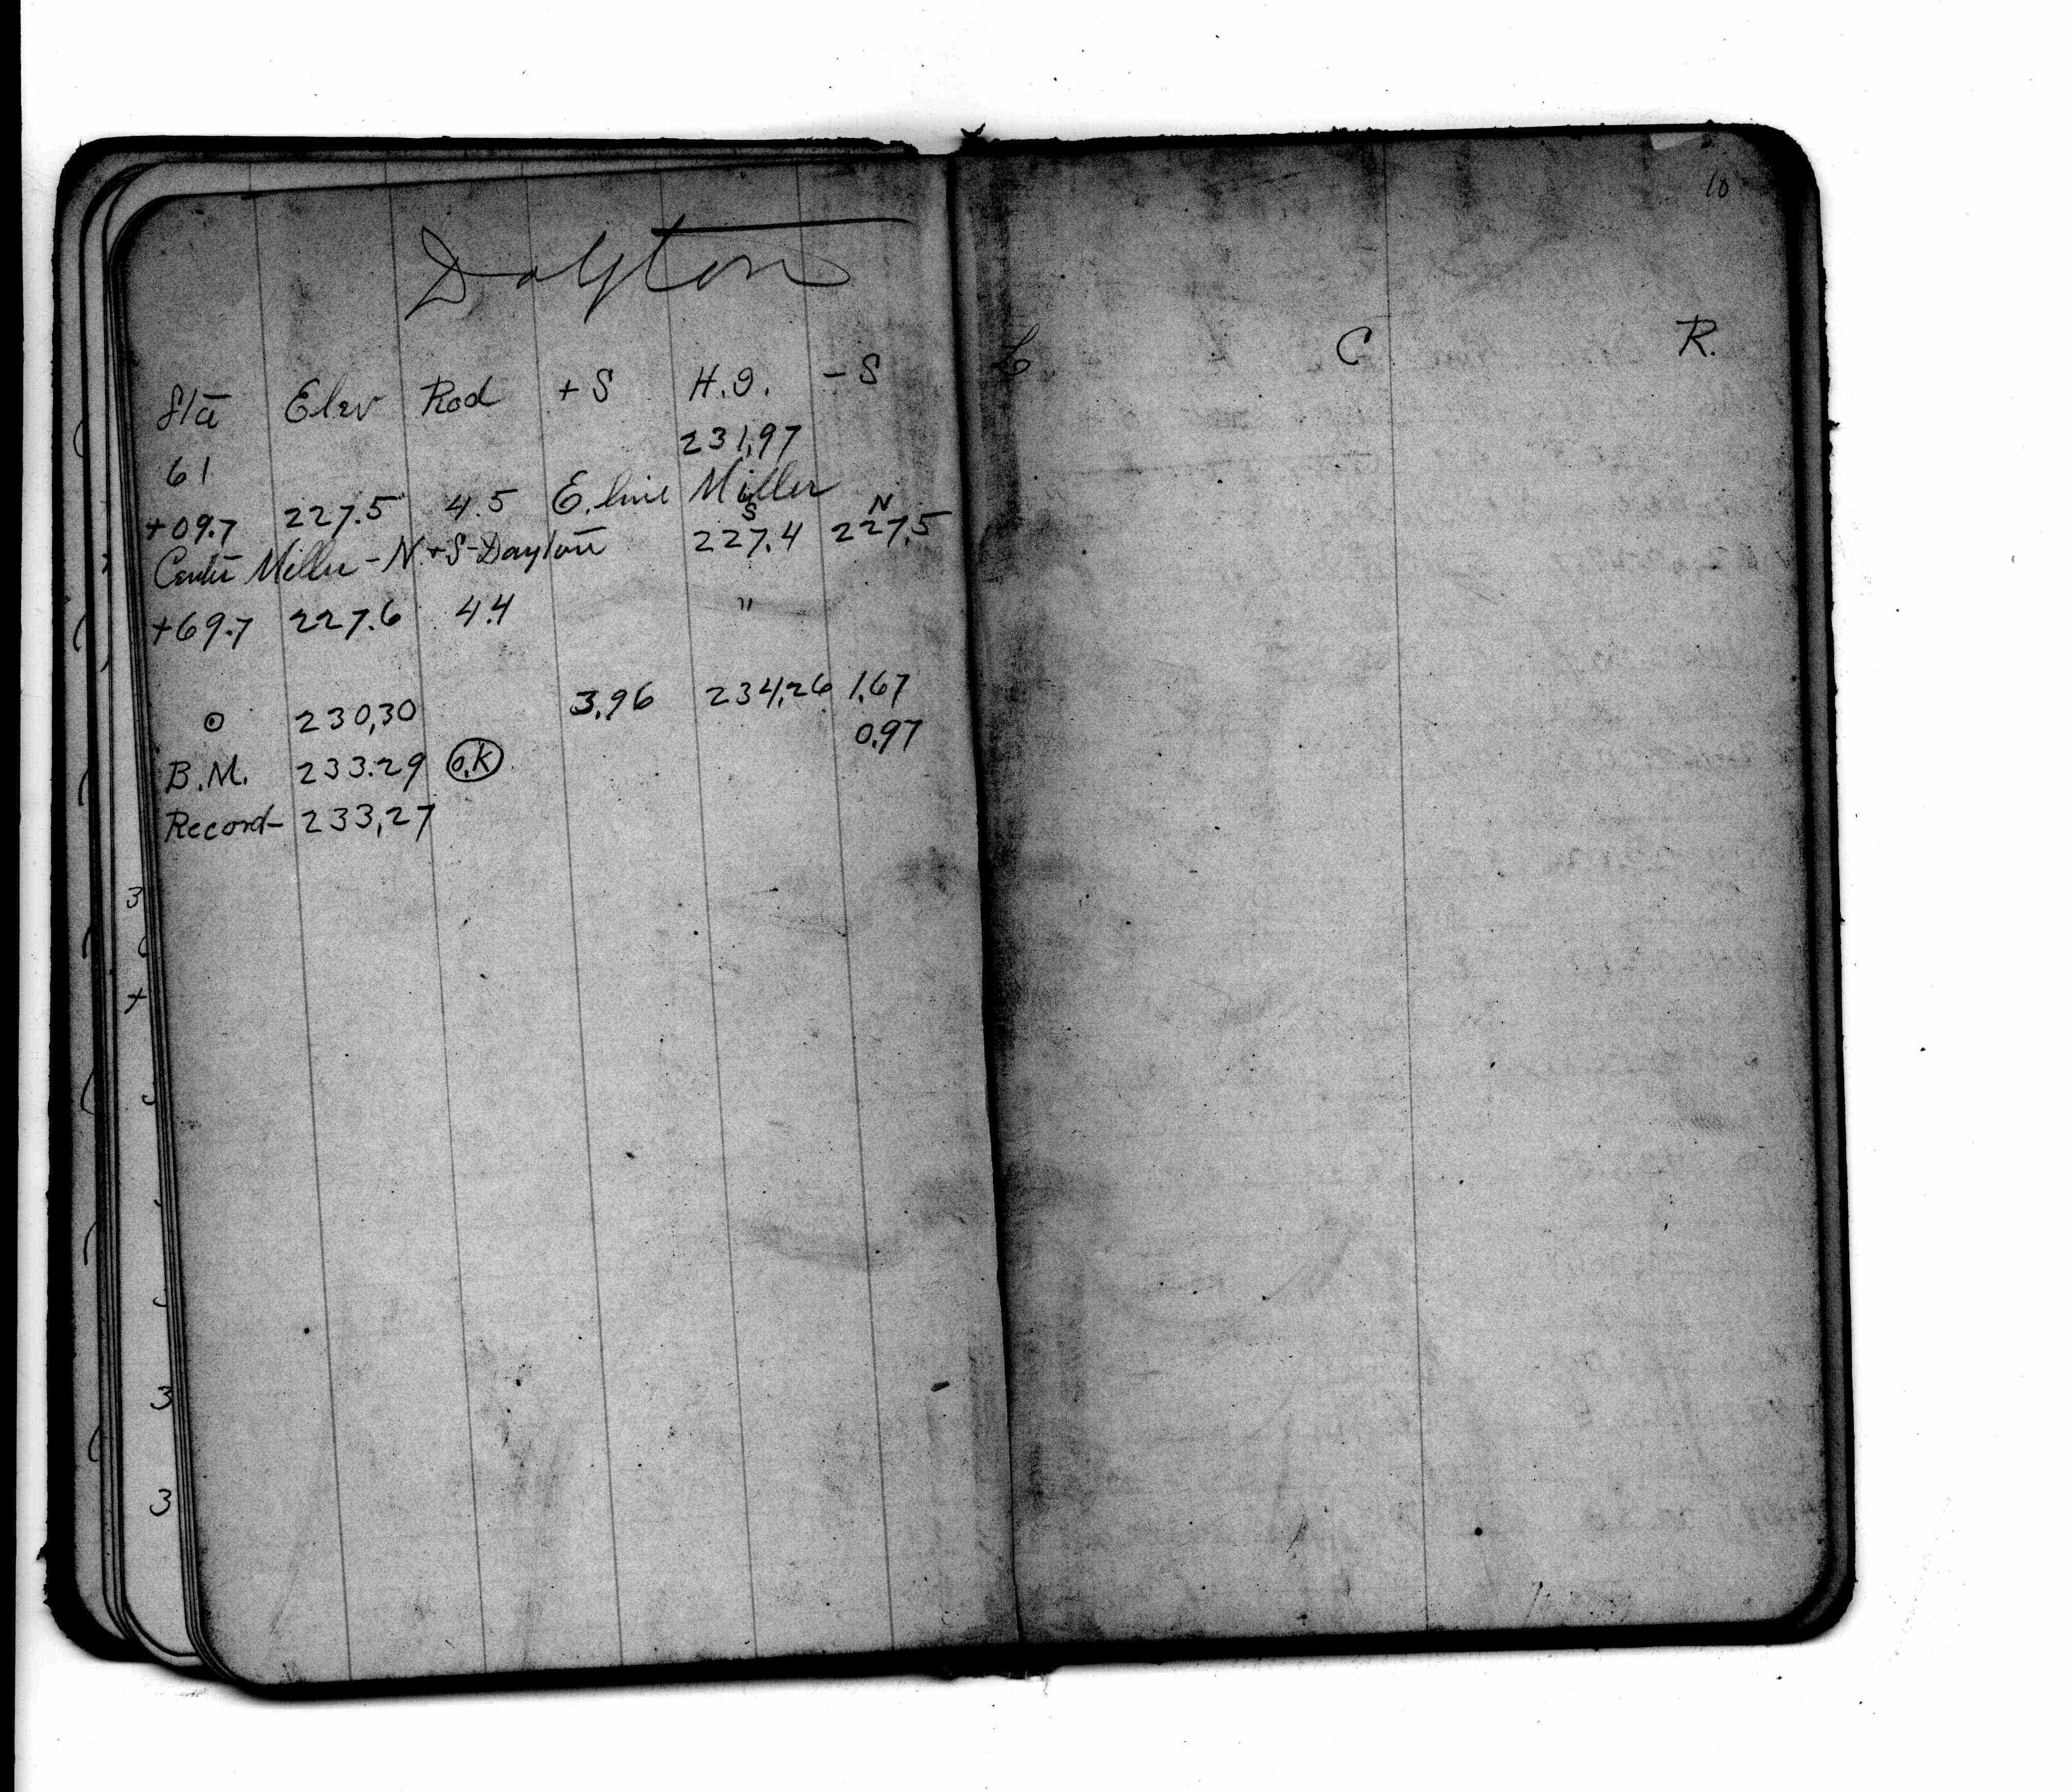 Dayton
Sta Elev Rod +S H.I. -S
61 231.97
+09.7 227.5 4.5 E. line Miller
S N
Center Miller - N + S - Dayton 227.4 227.5
+69.7 227.6 4.4 "
⊙ 230.30 3.96 234.26 1.67
0.97
B.M. 233.29 O.K
Record- 233.27
10
L C R.